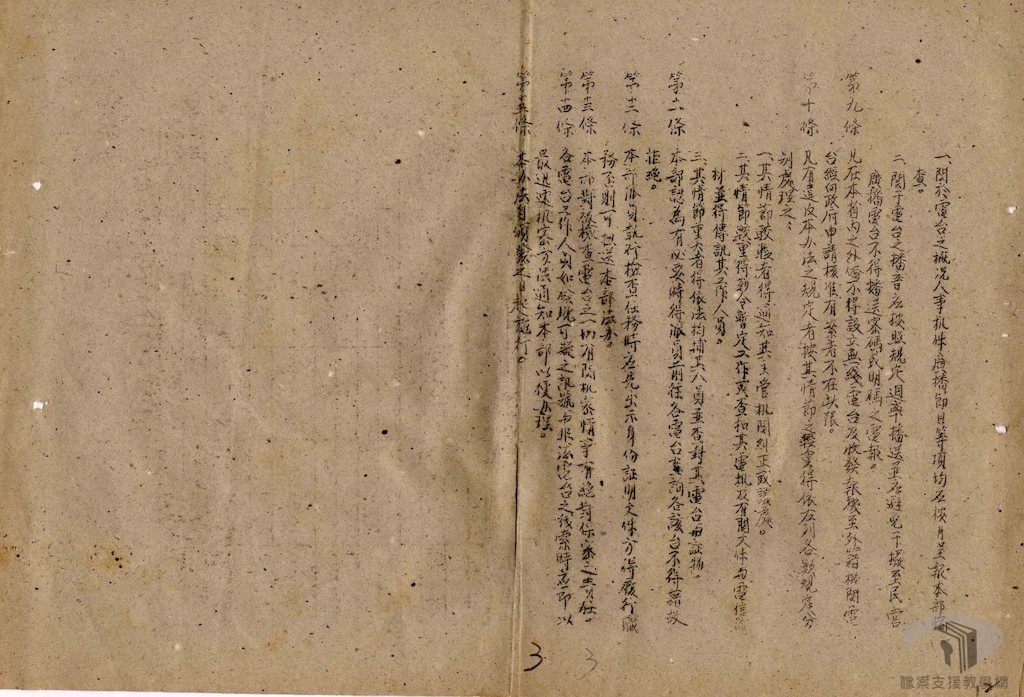 一、關於電台之概況人事机件廣播節目等項均應按月呈報本部備
查。
二、關于電台之播音應按照規定週率播送並應避免干擾至民營
廣播電台不得播送密碼或明碼之電報。
第九條 凡在本省内之外僑不得設立無綫電台及收發報機至外籍機關電
台經向政府申請核准有案者不在此限。
第十條 凡有違反本办法之規定者按其情節之輕重得依左列各款規定分
別處理之：
一、其情節較輕者得通知其主管机関糾正或議處。
二、其情節較重得勒令暫定工作或查扣其電机及有関文件与電信
並得傳訊其工作人員。
三、其情節重大者得依法拘捕其人員並查封其電台與証物。
第十一條 本部認為有必要時得派員前往各電台查詢各該台不得藉故
拒絕。
第十二條 本部派員執行檢查任務時應先出示身份証明文件方得履行職
務否則可扭送本部法办。
第十三條 本部對被檢查電台之一切有関机密情事有絕對保密之責任。
第十四條 各電台工作人員如發現可疑之訊號与非法電台之綫索時應即以
最迅速机密方法通知本部以便办理。
第十五條 本办法自頒發之日起施行。
3
3
檔案支援教學網